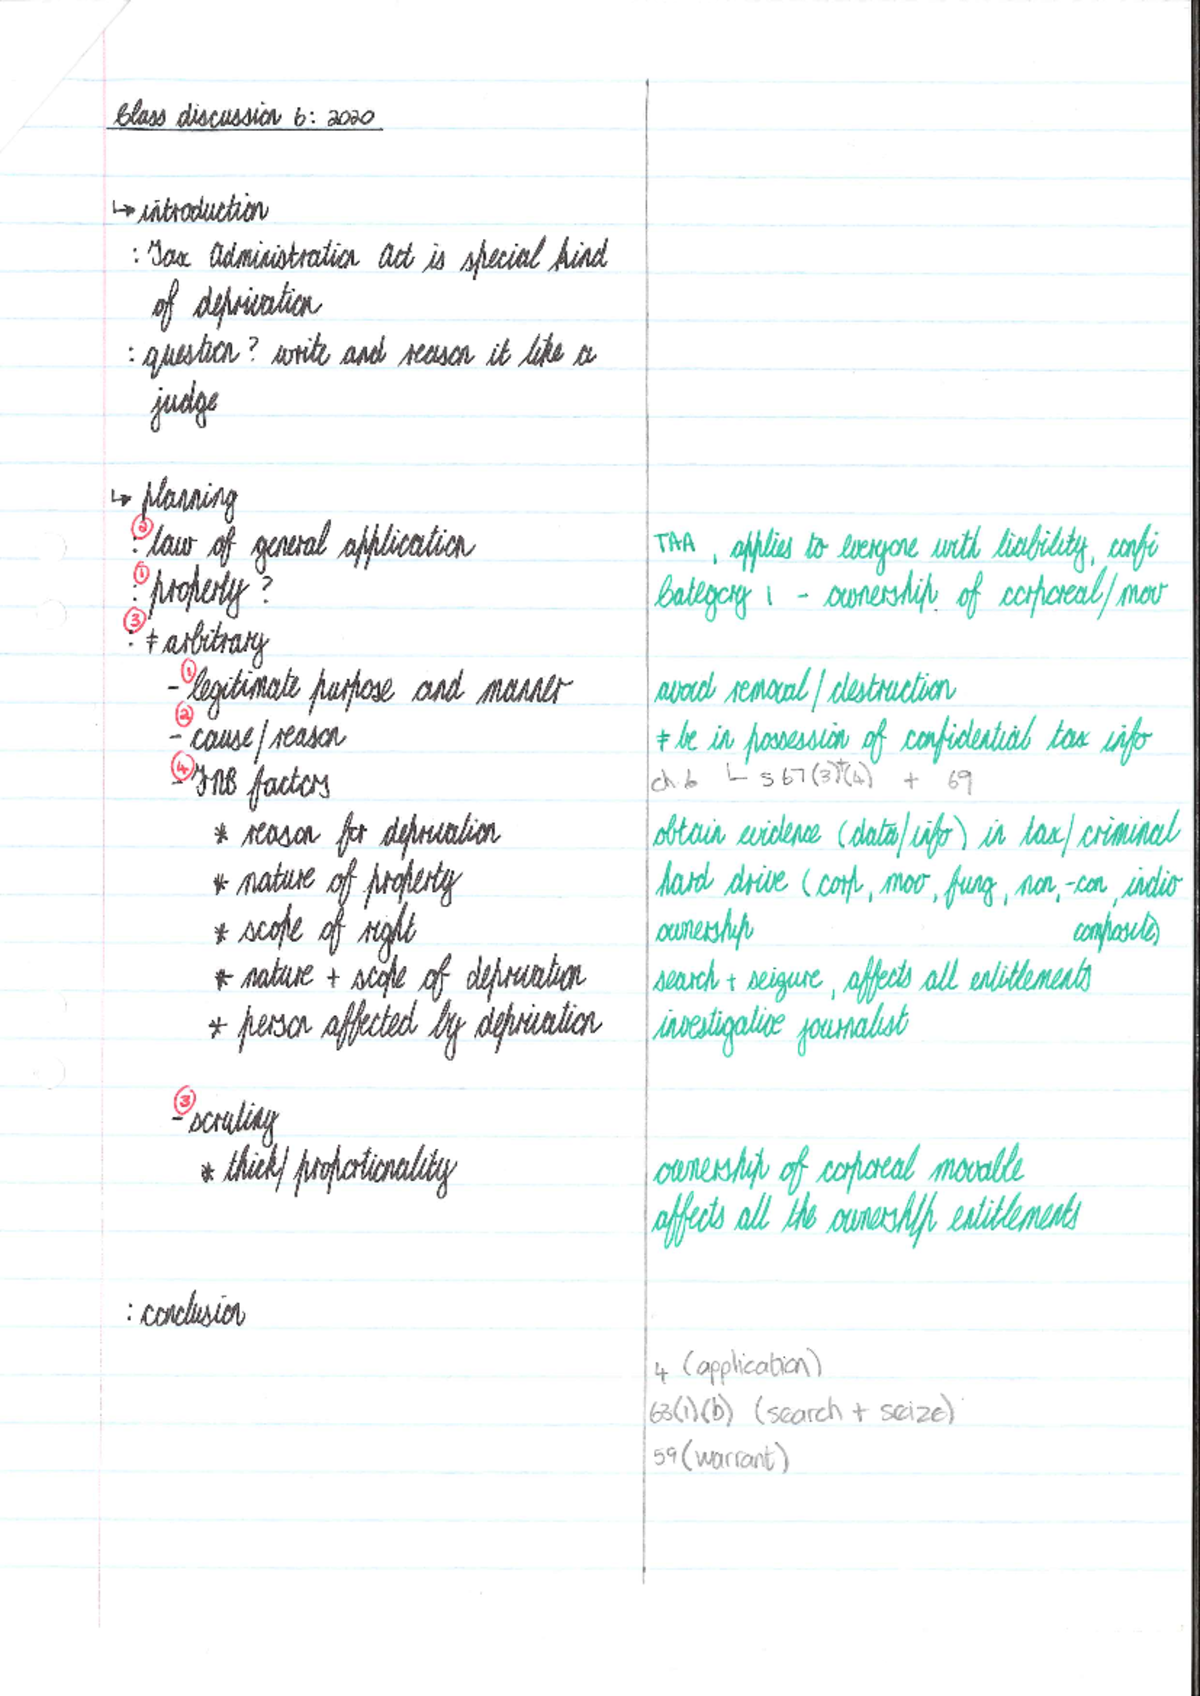 Class discussion 6: 2020
↳ introduction
: Tax Administration Act is special kind
of deprivation
: question? write and reason it like a
judge
↳ planning
: ② law of general application TAA, applies to everyone with liability, confi
: ① property? Category 1 - ownership of corporeal/mov
: ③ ≠ arbitrary
- ① legitimate purpose and manner avoid removal/destruction
- ② cause/reason ≠ be in possession of confidential tax info
- ④ FNB factors ch. 6 ↳ s 67(3)+(4) + 69
* reason for deprivation obtain evidence (data/info) in tax/criminal
* nature of property hard drive (corp, mov, fung, non-con, indiv
* scope of right ownership composite)
* nature + scope of deprivation search + seizure, affects all entitlements
* person affected by deprivation investigative journalist
- ③ scrutiny
* thick/proportionality ownership of corporeal movable
affects all the ownership entitlements
: conclusion
4 (application)
63(1)(b) (search + seize)
59 (warrant)